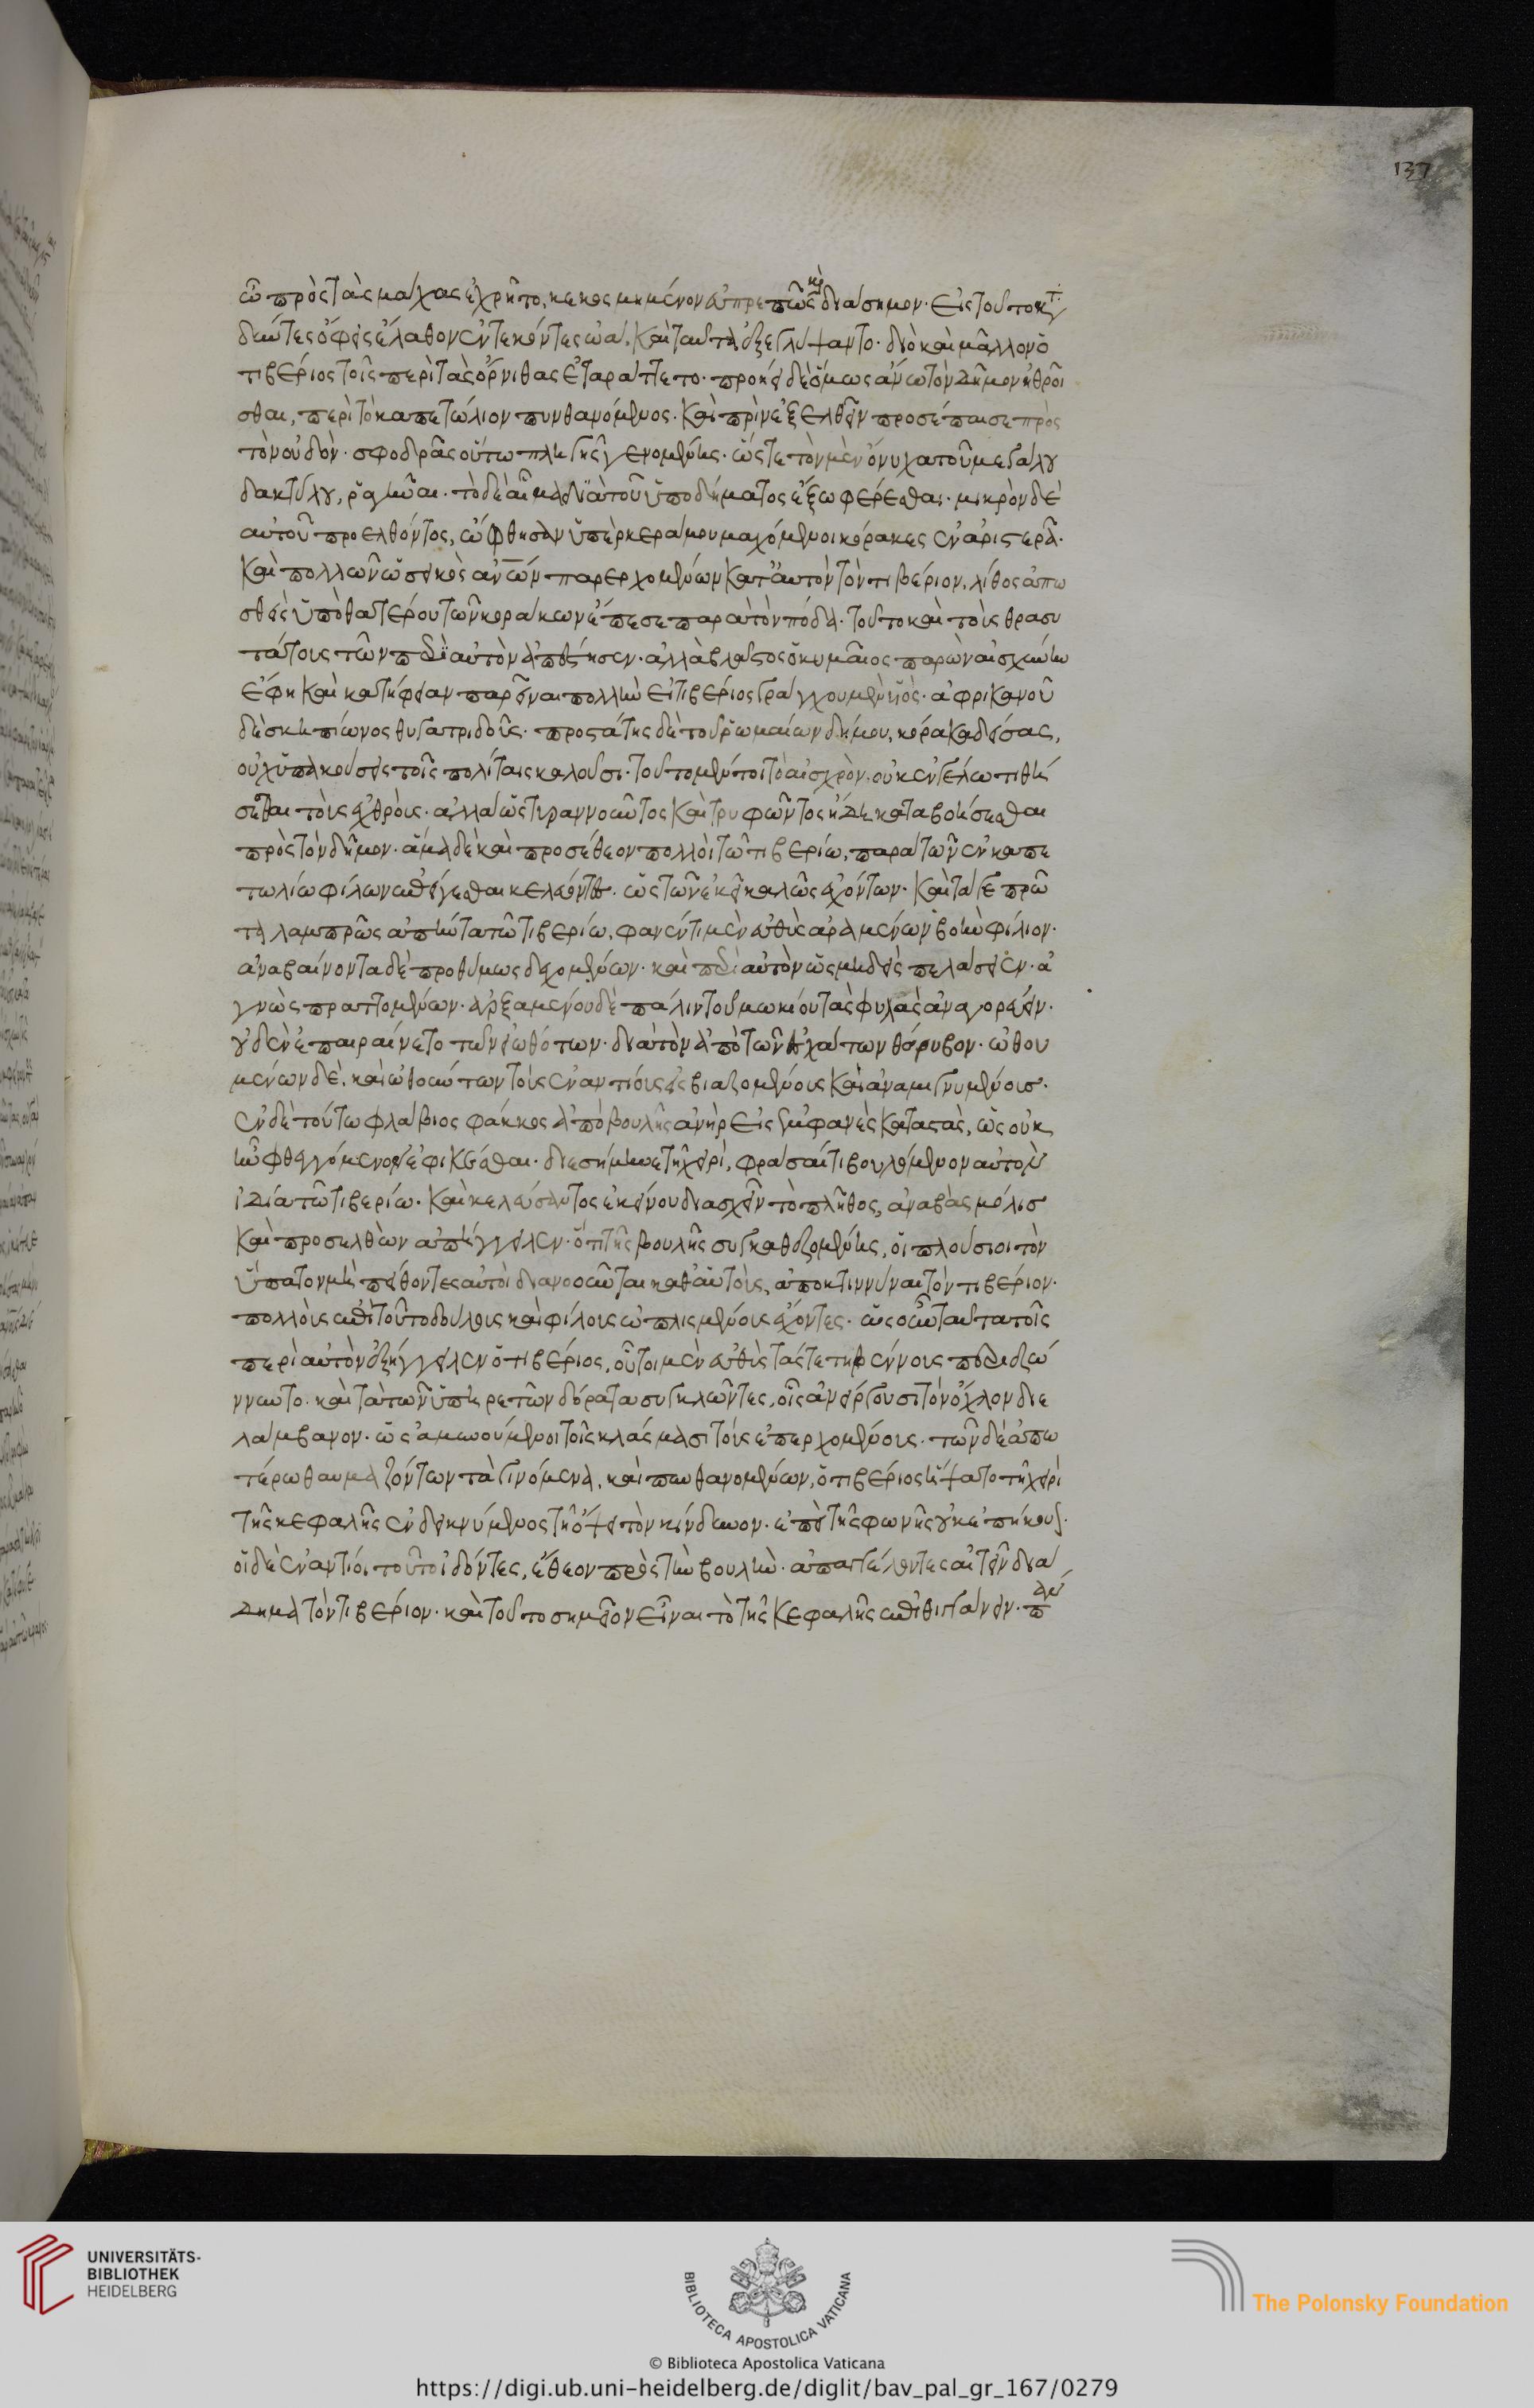 137
ᾧ πρὸς τὰς μάχας ἐχρῆτο, κεκοσμημένον εὐπρεπῶς καὶ διάσημον. εἰς τοῦτο κατα
δύντες ὄφεις ἔλαθον ἐντεκόντες ὠά. καὶ ταῦτα ἐξεγλύψαντο. διὸ καὶ μᾶλλον ὁ
τιβέριος τοῖς περὶ τὰς ὄρνιθας ἐταράττετο. προήει δὲ ὅμως ἄνω τὸν δῆμον ἠθροῖ
σθαι, περὶ τὸ καπετώλιον πυνθανόμενος. καὶ πρὶν ἐξελθεῖν προσέπαισε πρὸς
τὸν οὐδόν. σφοδρᾶς οὕτω πληγῆς γενομένης. ὥστε τὸν μὲν ὄνυχα τοῦ μεγάλου
δακτύλου, ῥαγῆναι. τὸ δὲ αἷμα διὰ τοῦ ὑποδήματος ἔξω φέρεσθαι. μικρὸν δὲ
αὐτοῦ προελθόντος, ὤφθησαν ὑπὲρ κεράμου μαχόμενοι κόρακες ἐν ἀριστερᾷ.
καὶ πολλῶν ὡς εἰκὸς ἀνων παρερχομένων κατ' αὐτὸν τὸν τιβέριον, λίθος ἀπω
σθεὶς ὑπὸ θατέρου τῶν κοράκων ἔπεσε παρὰ τὸν πόδα. τοῦτο καὶ τοὺς θρασυ
τάτους τῶν περὶ αὐτὸν ἐπέστησεν. ἀλλὰ βλάστος ὁ κυμαῖος παρὼν αἰσχύνην
ἔφη καὶ κατήφειαν παρεῖναι πολλὴν εἰ τιβέριος γράγχου μὲν υἱὸς. ἀφρικανοῦ
δὲ σκηπίωνος θυγατριδοῦς. προστάτης δὲ τοῦ ῥωμαίων δήμου, κόρακα δείσας,
οὐχ ὑπακούσεις τοῖς πολίταις καλοῦσι. τοῦτο μέντοι τὸ αἰσχρὸν. οὐκ ἐν γέλωτι θή
σεσθαι τοὺς ἐχθροὺς. ἀλλὰ ὡς τυραννοῦντος καὶ τρυφῶντος ἤδη καταβοήσεσθαι
πρὸς τὸν δῆμον. ἅμα δὲ καὶ προσέθεον πολλοὶ τῷ τιβερίῳ, παρὰ τῶν ἐν καπε
τωλίῳ φίλων ἐπείγεσθαι κελεύοντες. ὡς τῶν ἐκεῖ καλῶς ἐχόντων. καὶ τά γε πρῶ
τα λαμπρῶς ἀπήντα τῷ τιβερίῳ, φανέντι μὲν εὐθὺς ἀραμένων βοὴν φίλιον.
ἀναβαίνοντα δὲ προθύμως δεχομένων. καὶ περὶ αὐτὸν ὡς μηδεὶς πελάσειεν. ἀ
γνὼς πραττομένων. ἀρξαμένου δὲ πάλιν τοῦ μωκίου τὰς φυλὰς ἀναγορεύειν.
οὐδὲν ἐπαιραίνετο τῶν εἰωθότων. διὰ τὸν ἀπὸ τῶν ἐσχάτων θόρυβον. ὠθου
μένων δὲ, καὶ ὠθούντων τοὺς ἐναντίους εἰσβιαζομένους καὶ ἀναμιγνυμένους.
ἐν δὲ τούτῳ φλάβιος φάκκος ἀπὸ βουλῆς ἀνὴρ εἰς ἐμφανὲς καταστὰς, ὡς οὐκ
ἦν φθεγγόμενον ἐφικέσθαι. διεσήμηνε τῇ χειρὶ, φράσαί τι βουλόμενον αὐτὸν
ἰδίᾳ τῷ τιβερίῳ. καὶ κελεύσαντος ἐκείνου διασχεῖν τὸ πλῆθος, ἀναβὰς μόλις
καὶ προσελθὼν ἀπήγγειλεν. ὅτι τῆς βουλῆς συγκαθεζομένης, οἱ πλούσιοι τὸν
ὕπατον μὴ πείθοντες αὐτοὶ διανοοῦνται καθ' αὑτοὺς, ἀποκτιννύναι τὸν τιβέριον.
πολλοὺς ἐπὶ τοῦτο δούλους καὶ φίλους ὡπλισμένους ἔχοντες. ὡς οὖν ταῦτα τοῖς
περὶ αὐτὸν ἐξήγγειλεν ὁ τιβέριος, οὗτοι μὲν εὐθὺς τάς τε τηβέννους περιεζώ
ννυντο. καὶ τὰ τῶν ὑπηρετῶν δόρατα συγκλῶντες, οἷς ἀνείργουσι τὸν ὄχλον διε
λάμβανον. ὡς ἀμυνούμενοι τοῖς κλάσμασι τοὺς ἐπερχομένους. τῶν δὲ ἀπω
τέρω θαυμαζόντων τὰ γινόμενα, καὶ πυνθανομένων, ὁ τιβέριος ἥψατο τῇ χειρὶ
τῆς κεφαλῆς ἐνδεικνύμενος τῇ ὄψει τὸν κίνδυνον. ἐπεὶ τῆς φωνῆς οὐκ ἐπήκουον.
οἱ δὲ ἐναντίοι τοῦτο ἰδόντες, ἔθεον πρὸς τὴν βουλὴν. ἀπαγγέλοντες αἰτεῖν διά
δημα τὸν τιβέριον. καὶ τοῦτο σημεῖον εἶναι τὸ τῆς κεφαλῆς ἐπιθιγγάνειν. παν
UNIVERSITÄTS-
BIBLIOTHEK
HEIDELBERG
BIBLIOTECA APOSTOLICA VATICANA
The Polonsky Foundation
© Biblioteca Apostolica Vaticana
https://digi.ub.uni-heidelberg.de/diglit/bav_pal_gr_167/0279